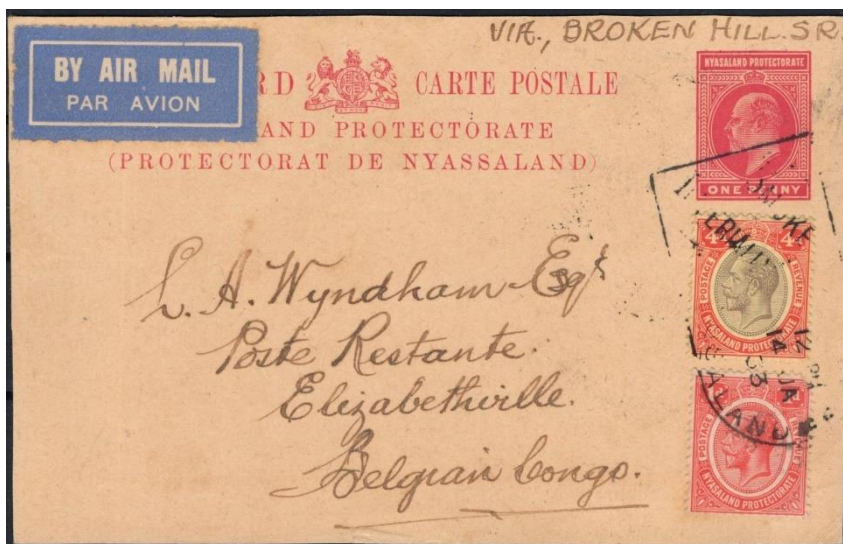 VIA., BROKEN HILL. S.R.
BY AIR MAIL
PAR AVION
RD CARTE POSTALE
AND PROTECTORATE
(PROTECTORAT DE NYASSALAND)
NYASALAND PROTECTORATE
ONE PENNY
4d 4d
POSTAGE REVENUE
NYASALAND PROTECTORATE
12 PM
14 JA
33
ALAND
POSTAGE
NYASALAND PROTECTORATE
L. A. Wyndham Esqr
Poste Restante.
Elizabethville.
Belgian Congo.